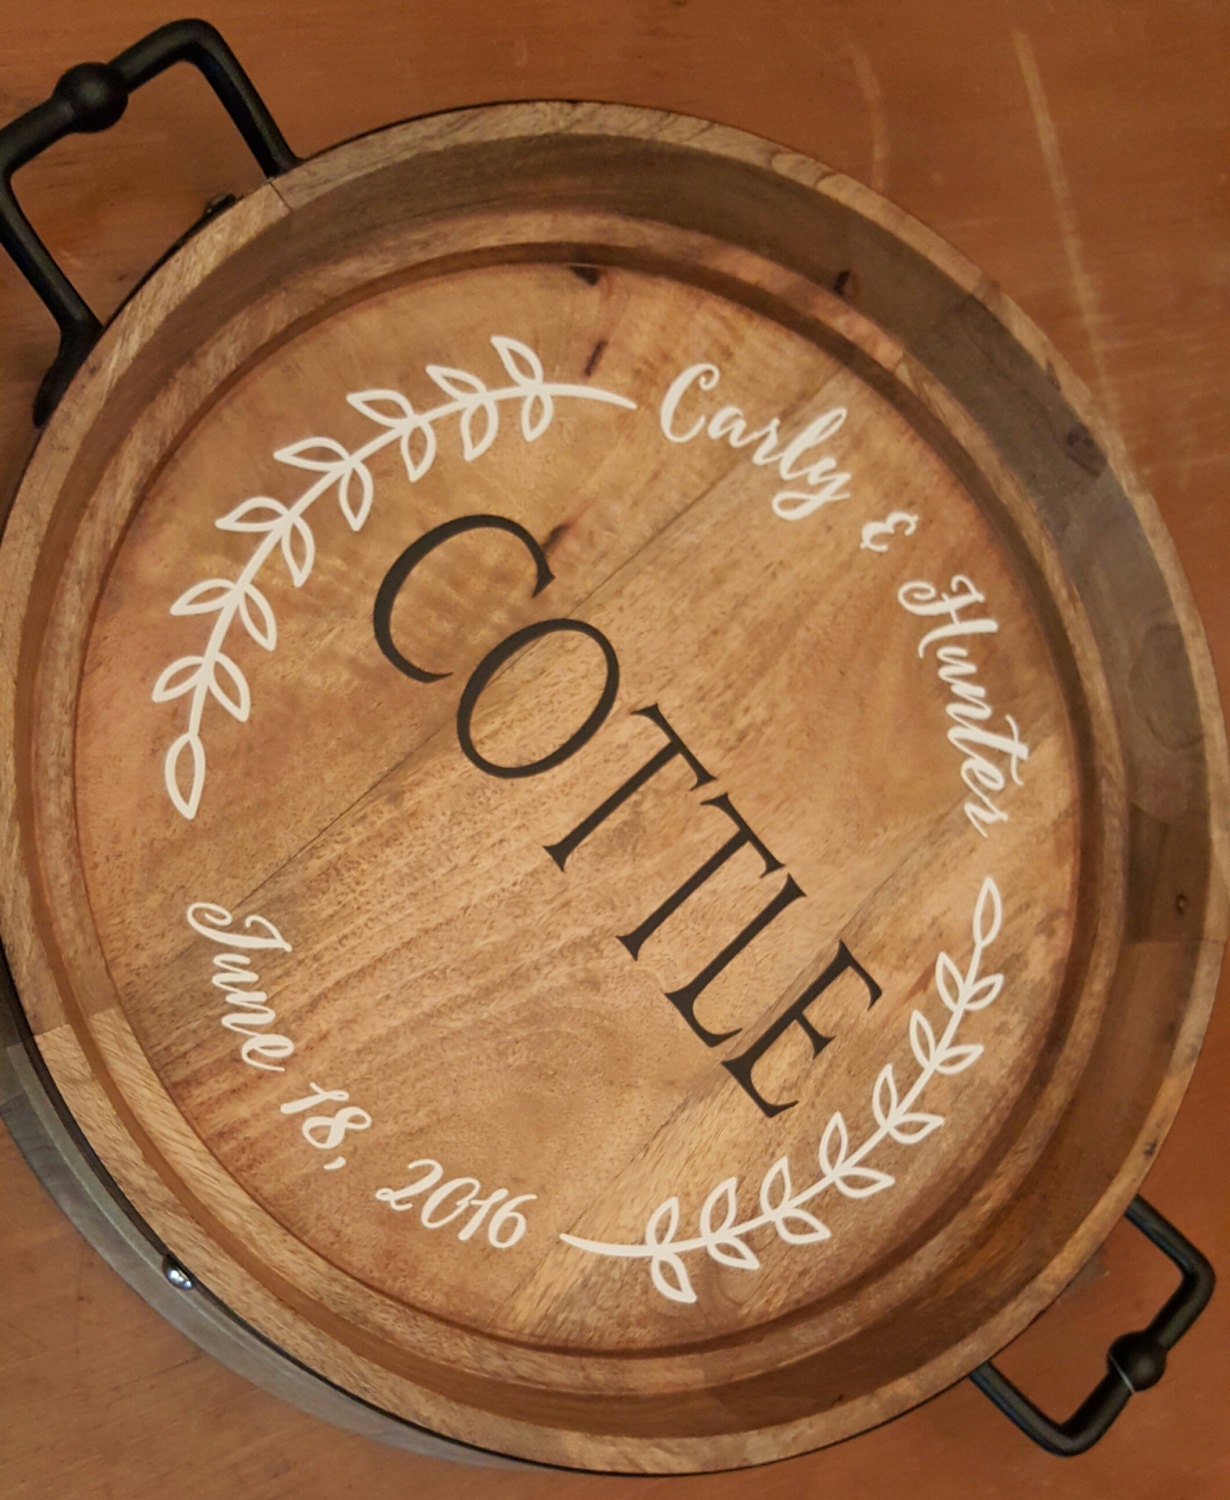 Carly & Hunter
COTTLE
June 18, 2016